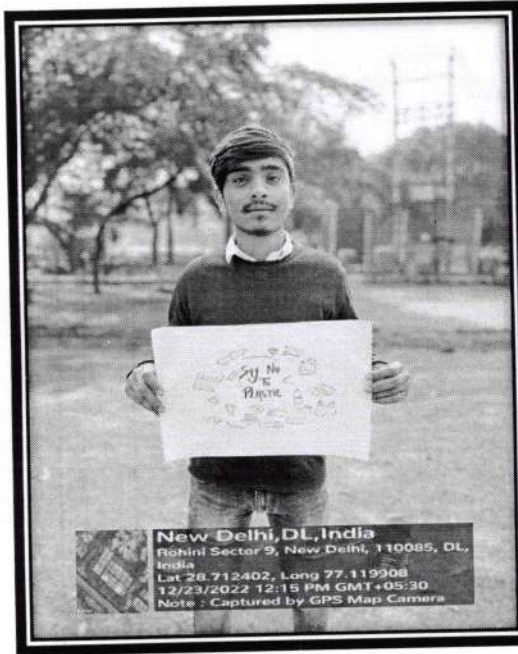 Say No
To
Plastic
New Delhi,DL,India
Rohini Sector 9, New Delhi, 110085, DL,
India
Lat 28.712402, Long 77.119908
12/23/2022 12:15 PM GMT+05:30
Note : Captured by GPS Map Camera